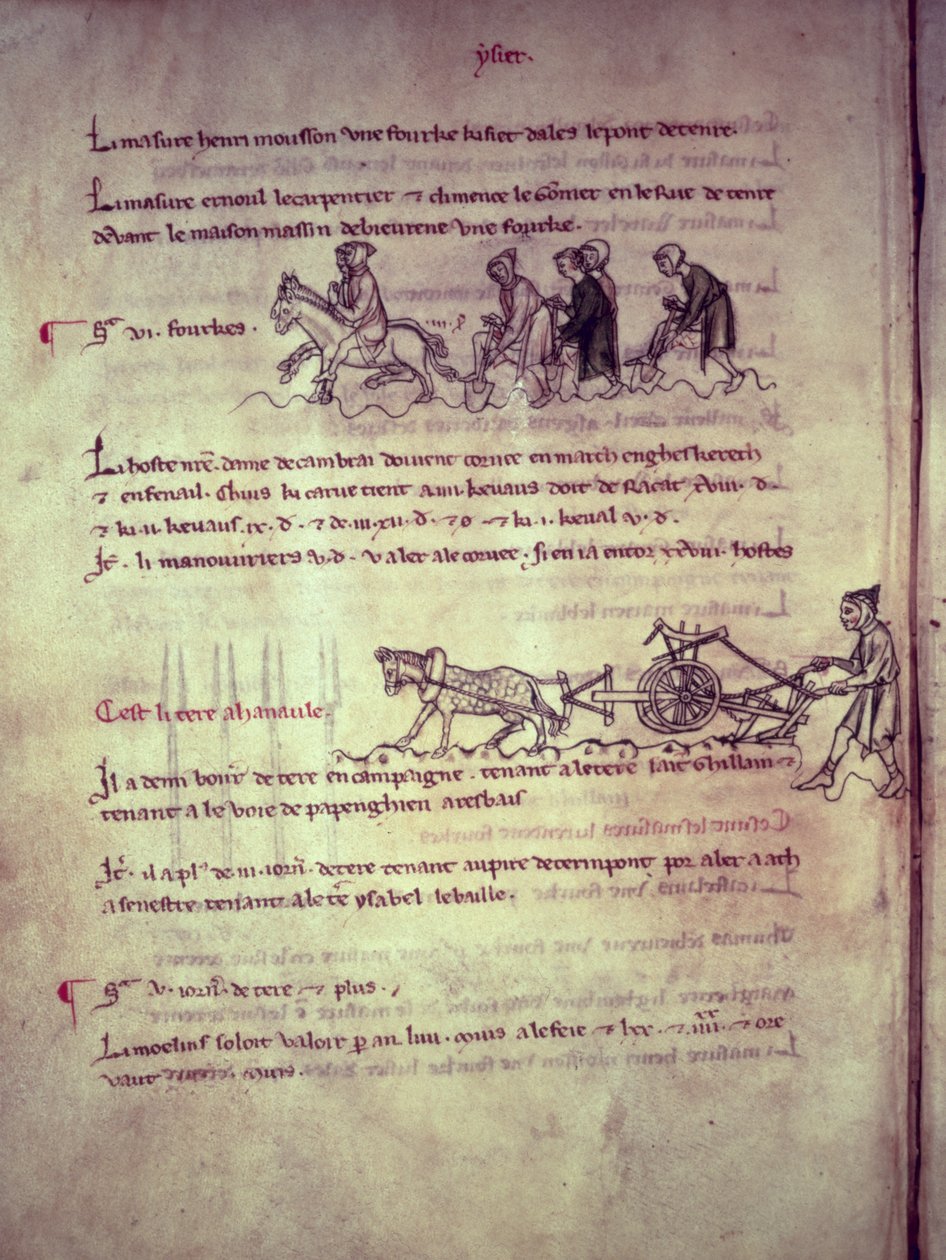 ysier.
Li masure henri mousson vne fourke ki siet dales le pont de tenre.
Li masure ernoul le carpentier ⁊ climence le Gomer en le Rue de tenre
deuant le maison massin de bieurene vne fourke.
Sᵃ vi. fourkes.
Li hoste nr̄e. dame de cambrai doiuent coruee en march en gheskerech
⁊ en fenail. Chius ki carue tient a .iiii. keuaus doit de Racat xviii. d.
⁊ ki .ii. keuaus .ix. d. ⁊ de .iii. xii. d. ⁊ ki .i. keual v. d.
It̄. li manouuriers v. d. v aler a le coruee. Si en i a encor xxviii. hostes
C'est li tere ahanaule.
Il a demi bonr̄ de tere en campaigne. tenant a le tere Ghillain ⁊
tenant a le voie de papenghien a resbais
It̄. il a pl' de .iii. iorn̄. de tere tenant au pire de tenrepont por aler a ath
a senestre tenant a le te᷑ ysabel le baille.
Sᵃ v. iorn̄. de tere ⁊ plus.
Li moelins soloit valoir p an. muis a le feie ⁊ lxx. ⁊ iiii. ⁊ ore
vaut muis.